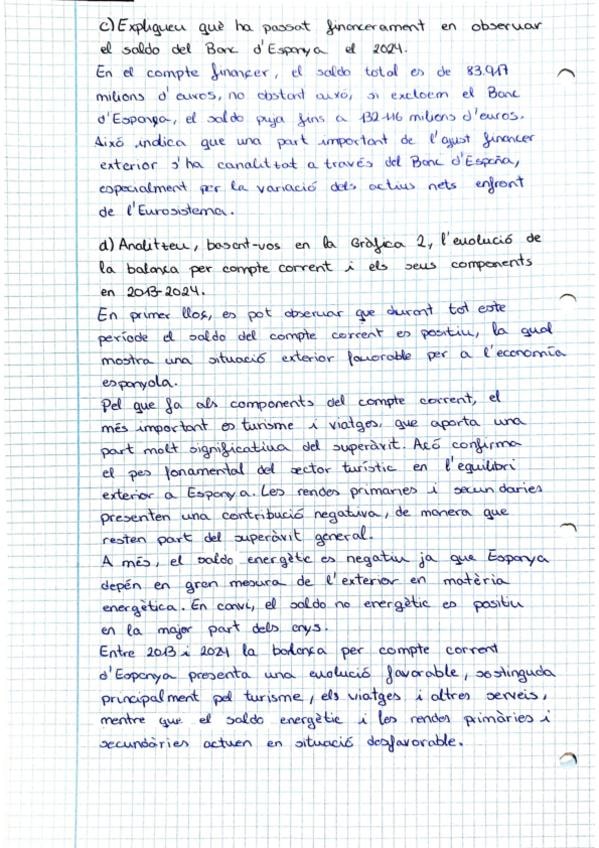 c) Expliqueu què ha passat financerament en observar
el saldo del Banc d'Espanya el 2024.
En el compte financer, el saldo total es de 83.917
milions d'euros, no obstant això, si excloem el Banc
d'Espanya, el saldo puja fins a 132.116 milions d'euros.
Això indica que una part important de l'ajust financer
exterior s'ha canalitzat a través del Banc d'España,
especialment per la variació dels actius nets enfront
de l'Eurosistema.
d) Analitzeu, basant-vos en la Gràfica 2, l'evolució de
la balança per compte corrent i els seus components
en 2013-2024.
En primer lloc, es pot observar que durant tot este
període el saldo del compte corrent es positiu, la qual
mostra una situació exterior favorable per a l'economía
espanyola.
Pel que fa als components del compte corrent, el
més important es turisme i viatges, que aporta una
part molt significativa del superàvit. Açó confirma
el pes fonamental del sector turístic en l'equilibri
exterior a Espanya. Les rendes primaries i secundaries
presenten una contribució negativa, de manera que
resten part del superàvit general.
A més, el saldo energètic es negatiu ja que Espanya
depén en gran mesura de l'exterior en matèria
energètica. En canvi, el saldo no energètic es positiu
en la major part dels anys.
Entre 2013 i 2024 la balança per compte corrent
d'Espanya presenta una evolució favorable, sostinguda
principalment pel turisme, els viatges i altres serveis,
mentre que el saldo energètic i les rendes primàries i
secundàries actuen en situació desfavorable.